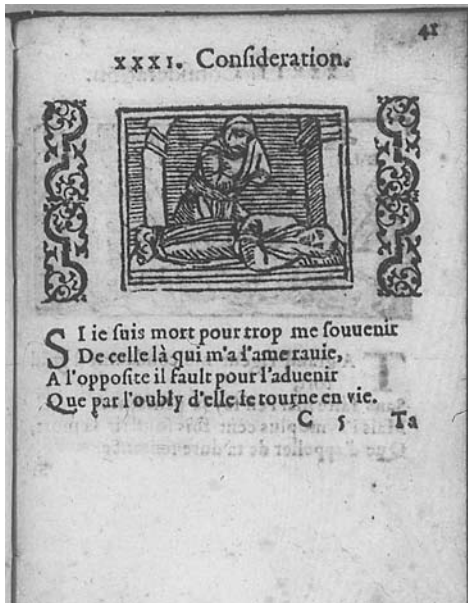 41
XXXI. Consideration.
SI ie suis mort pour trop me souuenir
De celle là qui m'a l'ame rauie,
A l'opposite il fault pour l'aduenir
Que par l'oubly d'elle ie tourne en vie.
C 5 Ta